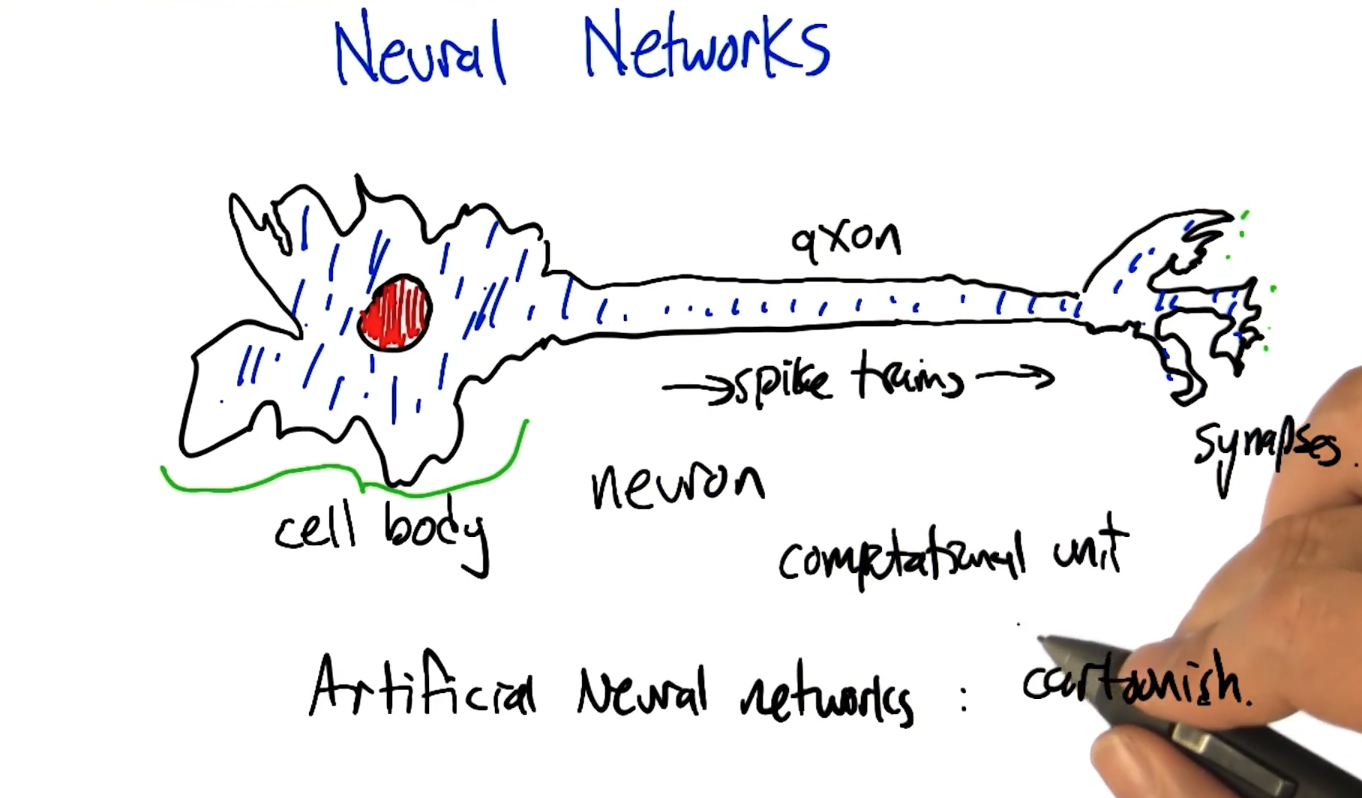 Neural Networks
axon
→ spike trains →
synapses
neuron
cell body
computational unit
Artificial Neural networks : cartoonish.